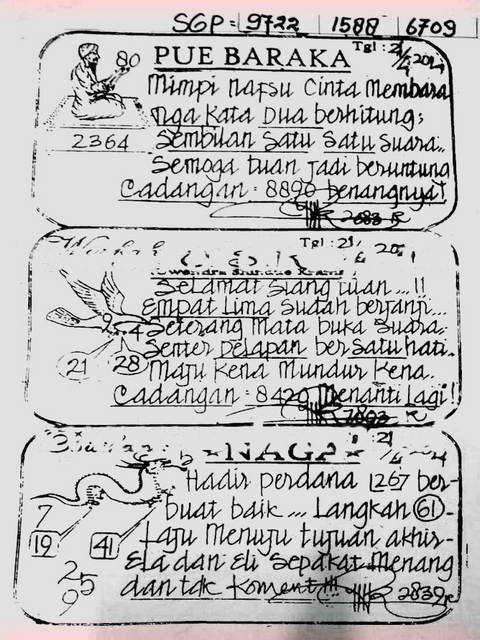 SGP = 9722 | 1588 | 6709
PUE BARAKA
Tgl : 21/4 2024
80
2364
Mimpi Nafsu Cinta Membara
nga kata Dua berhitung;
Sembilan Satu Satu Suara..
Semoga tuan jadi beruntung
Cadangan : 8890 benangnya!
Tgl : 21/4 20
Selamat Siang tuan ... !!
Empat Lima Sudah berjanji...
954
Seterang Mata buka Suara.
Senter Delapan ber Satu hati.
21 28
Maju Kena Mundur Kena.
Cadangan : 8420 Menanti Lagi!
NAGA
: 21/4
Hadir perdana 1267 ber-
7
buat baik ... Langkan 61 -
19 41
Laju Menuju tujuan akhir-
25
9
Ela dan Eli Sepakat Menang
dan tak Koment!!! 2839